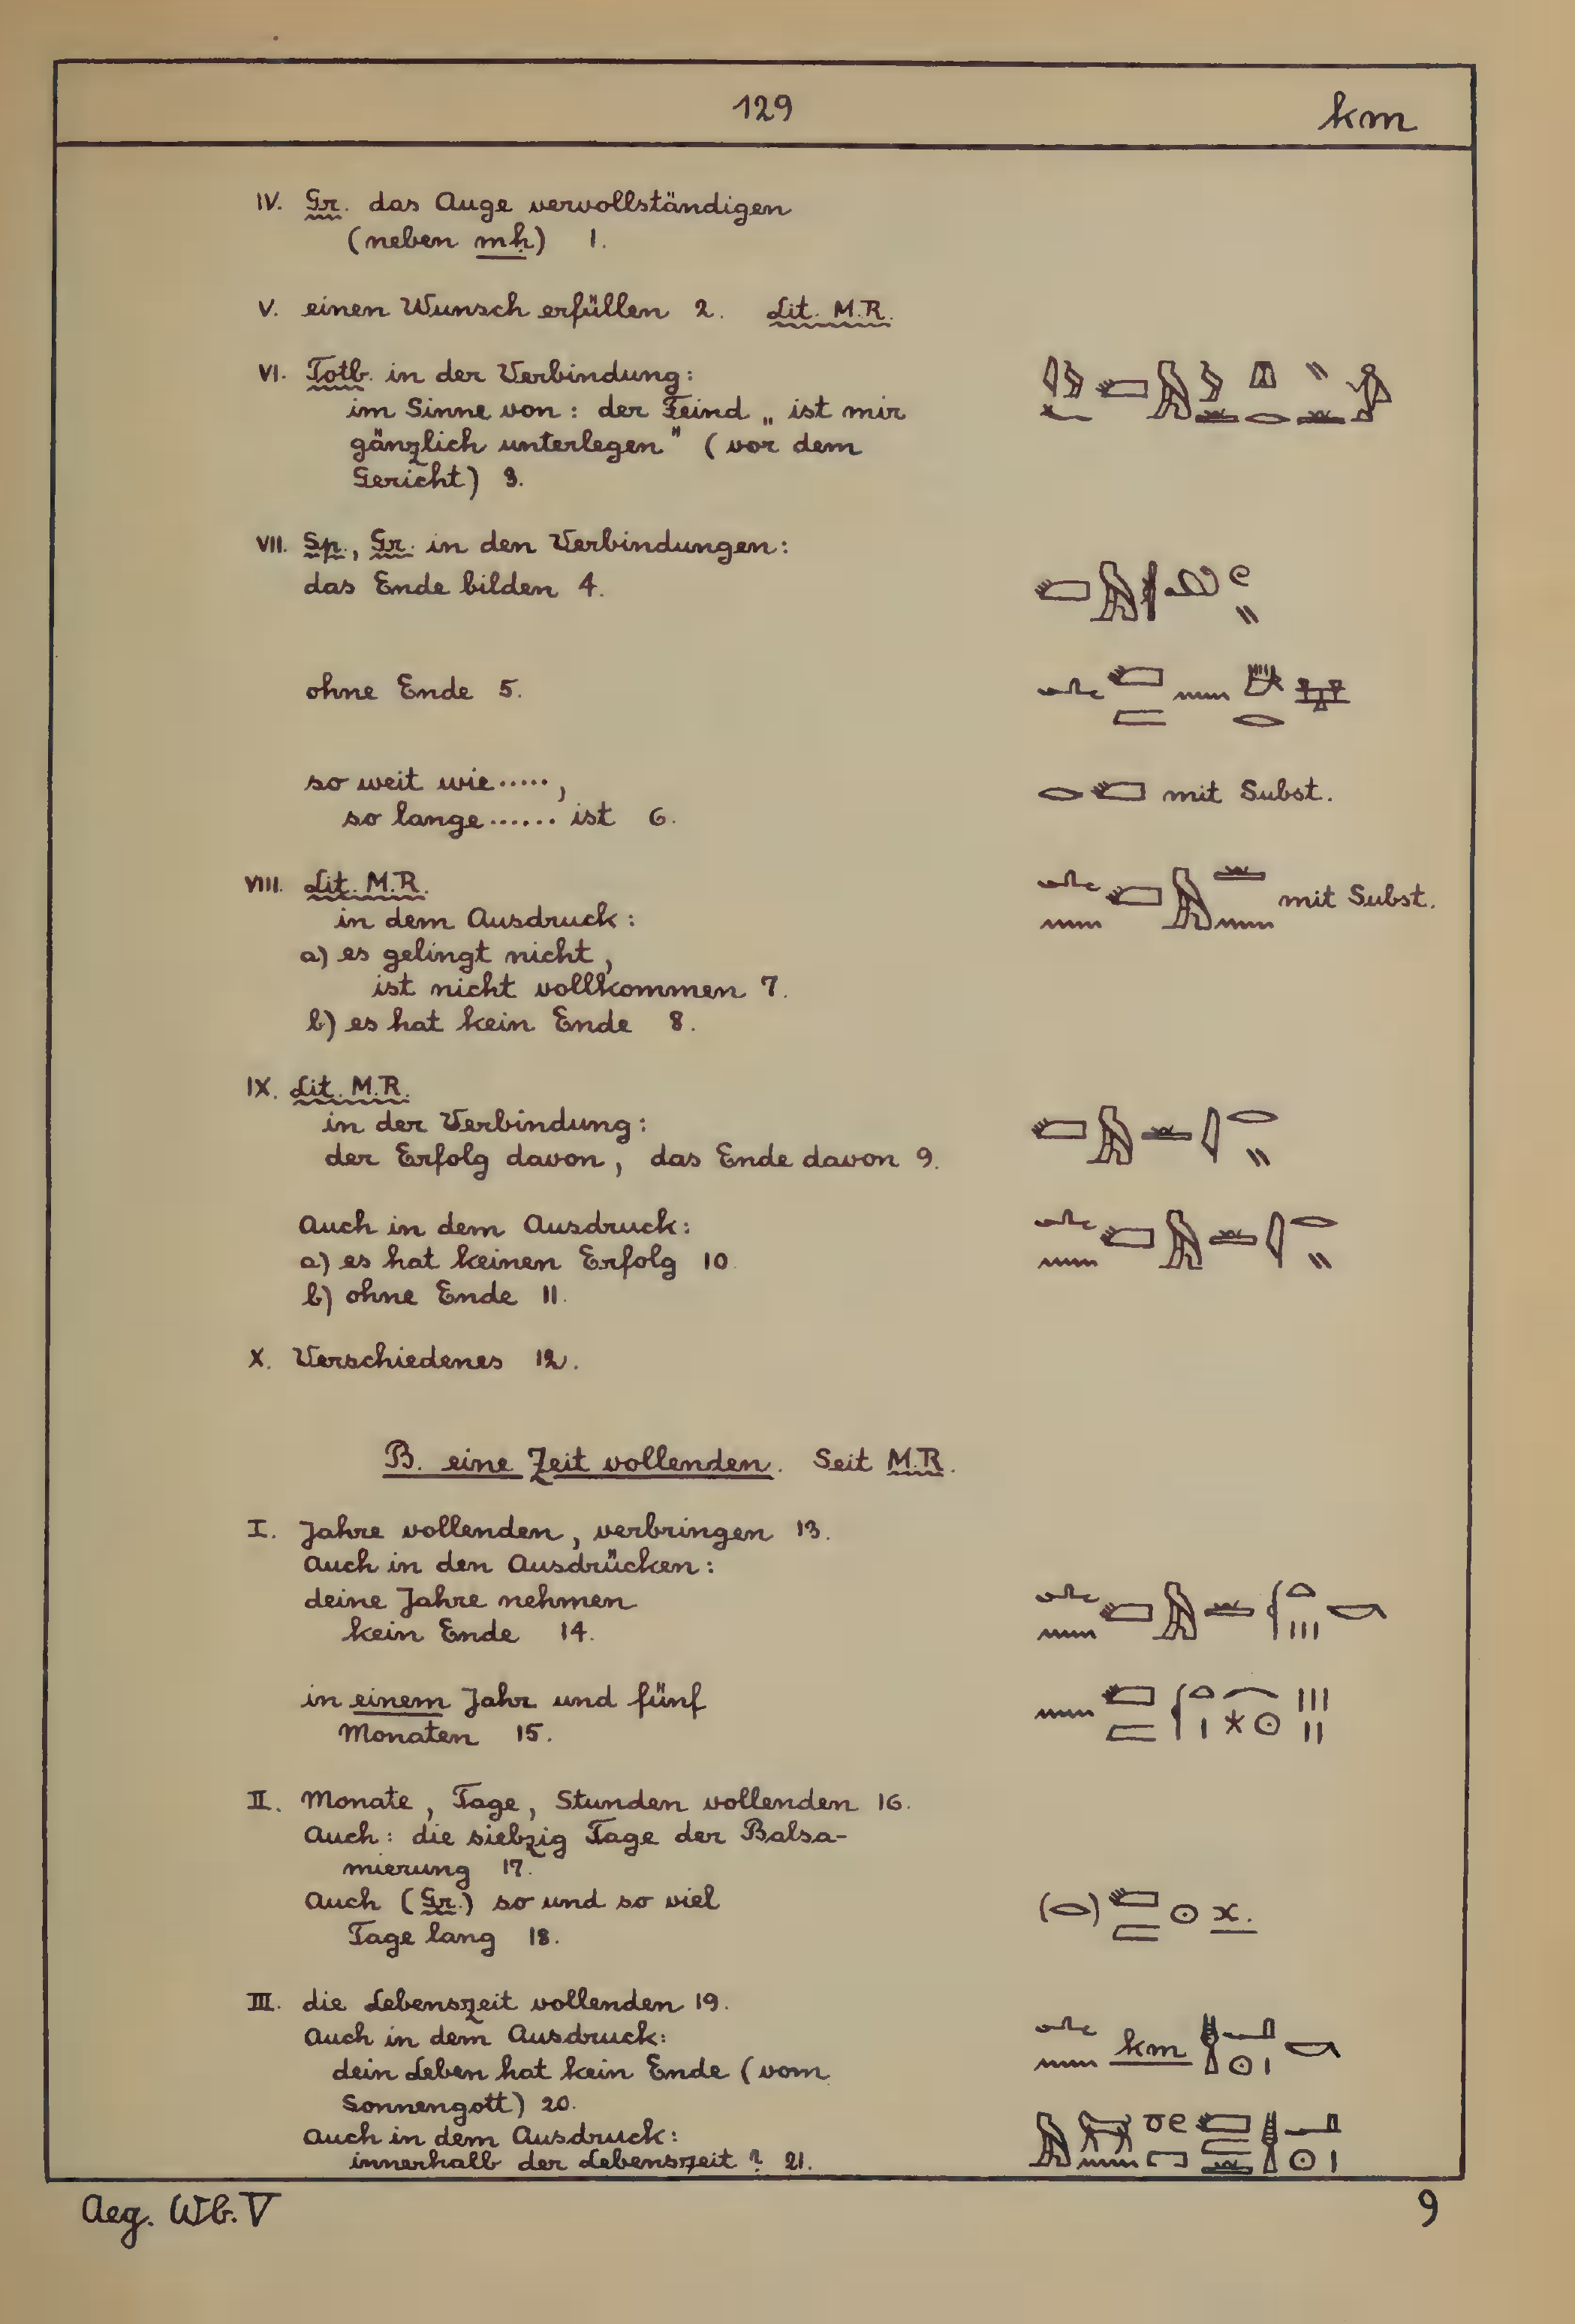 129
km
IV. Gr. das Auge vervollständigen
(neben mḥ) 1.
V. einen Wunsch erfüllen 2. Lit. M.R.
VI. Totb. in der Verbindung:
im Sinne von: der Feind „ist mir
gänzlich unterlegen" (vor dem
Gericht) 3.
VII. Sp., Gr. in den Verbindungen:
das Ende bilden 4.
ohne Ende 5.
so weit wie.....,
mit Subst.
so lange...... ist 6.
VIII. Lit. M.R.
mit Subst.
in dem Ausdruck:
a) es gelingt nicht,
ist nicht vollkommen 7.
b) es hat kein Ende 8.
IX. Lit. M.R.
in der Verbindung:
der Erfolg davon, das Ende davon 9.
Auch in dem Ausdruck:
a) es hat keinen Erfolg 10
b) ohne Ende 11.
X. Verschiedenes 12.
B. eine Zeit vollenden. Seit M.R.
I. Jahre vollenden, verbringen 13.
Auch in den Ausdrücken:
deine Jahre nehmen
kein Ende 14.
in einem Jahr und fünf
Monaten 15.
II. Monate, Tage, Stunden vollenden 16.
Auch: die siebzig Tage der Balsa-
mierung 17.
Auch (Gr.) so und so viel
x.
Tage lang 18.
III. die Lebenszeit vollenden 19.
Auch in dem Ausdruck:
km
dein Leben hat kein Ende (vom
Sonnengott) 20.
Auch in dem Ausdruck:
innerhalb der Lebenszeit ? 21.
Aeg. Wb. V
9